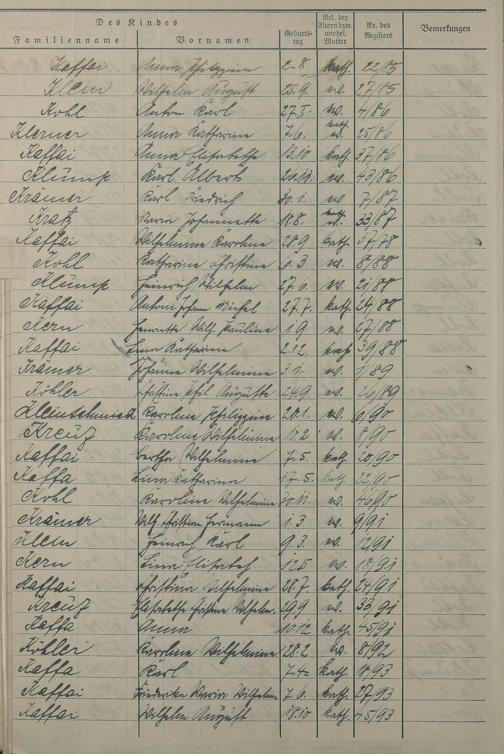 Des Kindes
Familienname Vornamen Geburtstag Rel. der Eltern bzw. unehel. Mutter Nr. des Registers Bemerkungen
Kaffai Anna Philippine 2.8. kath. 22/85
Klein Wilhelm August 25.9. ev. 27/85
Kohl Anton Karl 27.I. ev. 4/86
Klerner Anna Katharina 7.6. kath. ev. 25/86
Kaffai Anna Elisabetha 13.10 kath. 37/86
Klump Karl Albert 20.11. ev. 43/86
Krämer Karl Friedrich 30.1. ev. 7/87
Kratz Maria Johannette 18.8. kath. ev. 33/87
Kaffai Wilhelmine Karoline 28.9 kath. 37/78
Kohl Katharina Christine 6.3 ev. 8/88
Klump Heinrich Wilhelm 27.6. ev. 21/88
Kaffai Anton Johann Michel 27.7. kath. 24/88
Kern Henriette Wilh. Pauline 1.9 ev. 27/88
Kaffai Lina Katharina 2.12. kath. 39/88
Krämer Johanna Wilhelmine 3.1. ev. 1/89
Köhler Christine Phil. Auguste 24.9 ev. 26/89
Kleinschmidt Karoline Philippine 20.1. ev. 6/90
Kreuz Karoline Wilhelmine ev. 8/90
Kaffai Bertha Wilhelmine 7.5 kath. 20/90
Kaffa Lina Katharina 17.5. kath. 22/90
Kohl Karoline Wilhelmine 30.11. ev. 46/90
Krämer Wilh. Christian Hermann 1.3. ev. 9/91
Klein Heinrich Karl 9.3. ev. 12/91
Kern Lina Elisabeth 12.5 ev. 18/91
Kaffai Christina Wilhelmine 28.7. kath. 24/91
Kreuz Elisabetha Christine Wilhelm. 29.9 ev. 33/91
Kaffa Anna 10.12 kath. 45/91
Köhler Karoline Wilhelmine 28.2 ev. 8/92
Kaffa Karl 7.4. kath. 18/93
Kaffai Friederike Maria Wilhelm. 7.6. kath. 27/93
Kaffai Wilhelm August 18.10 kath. 45/93